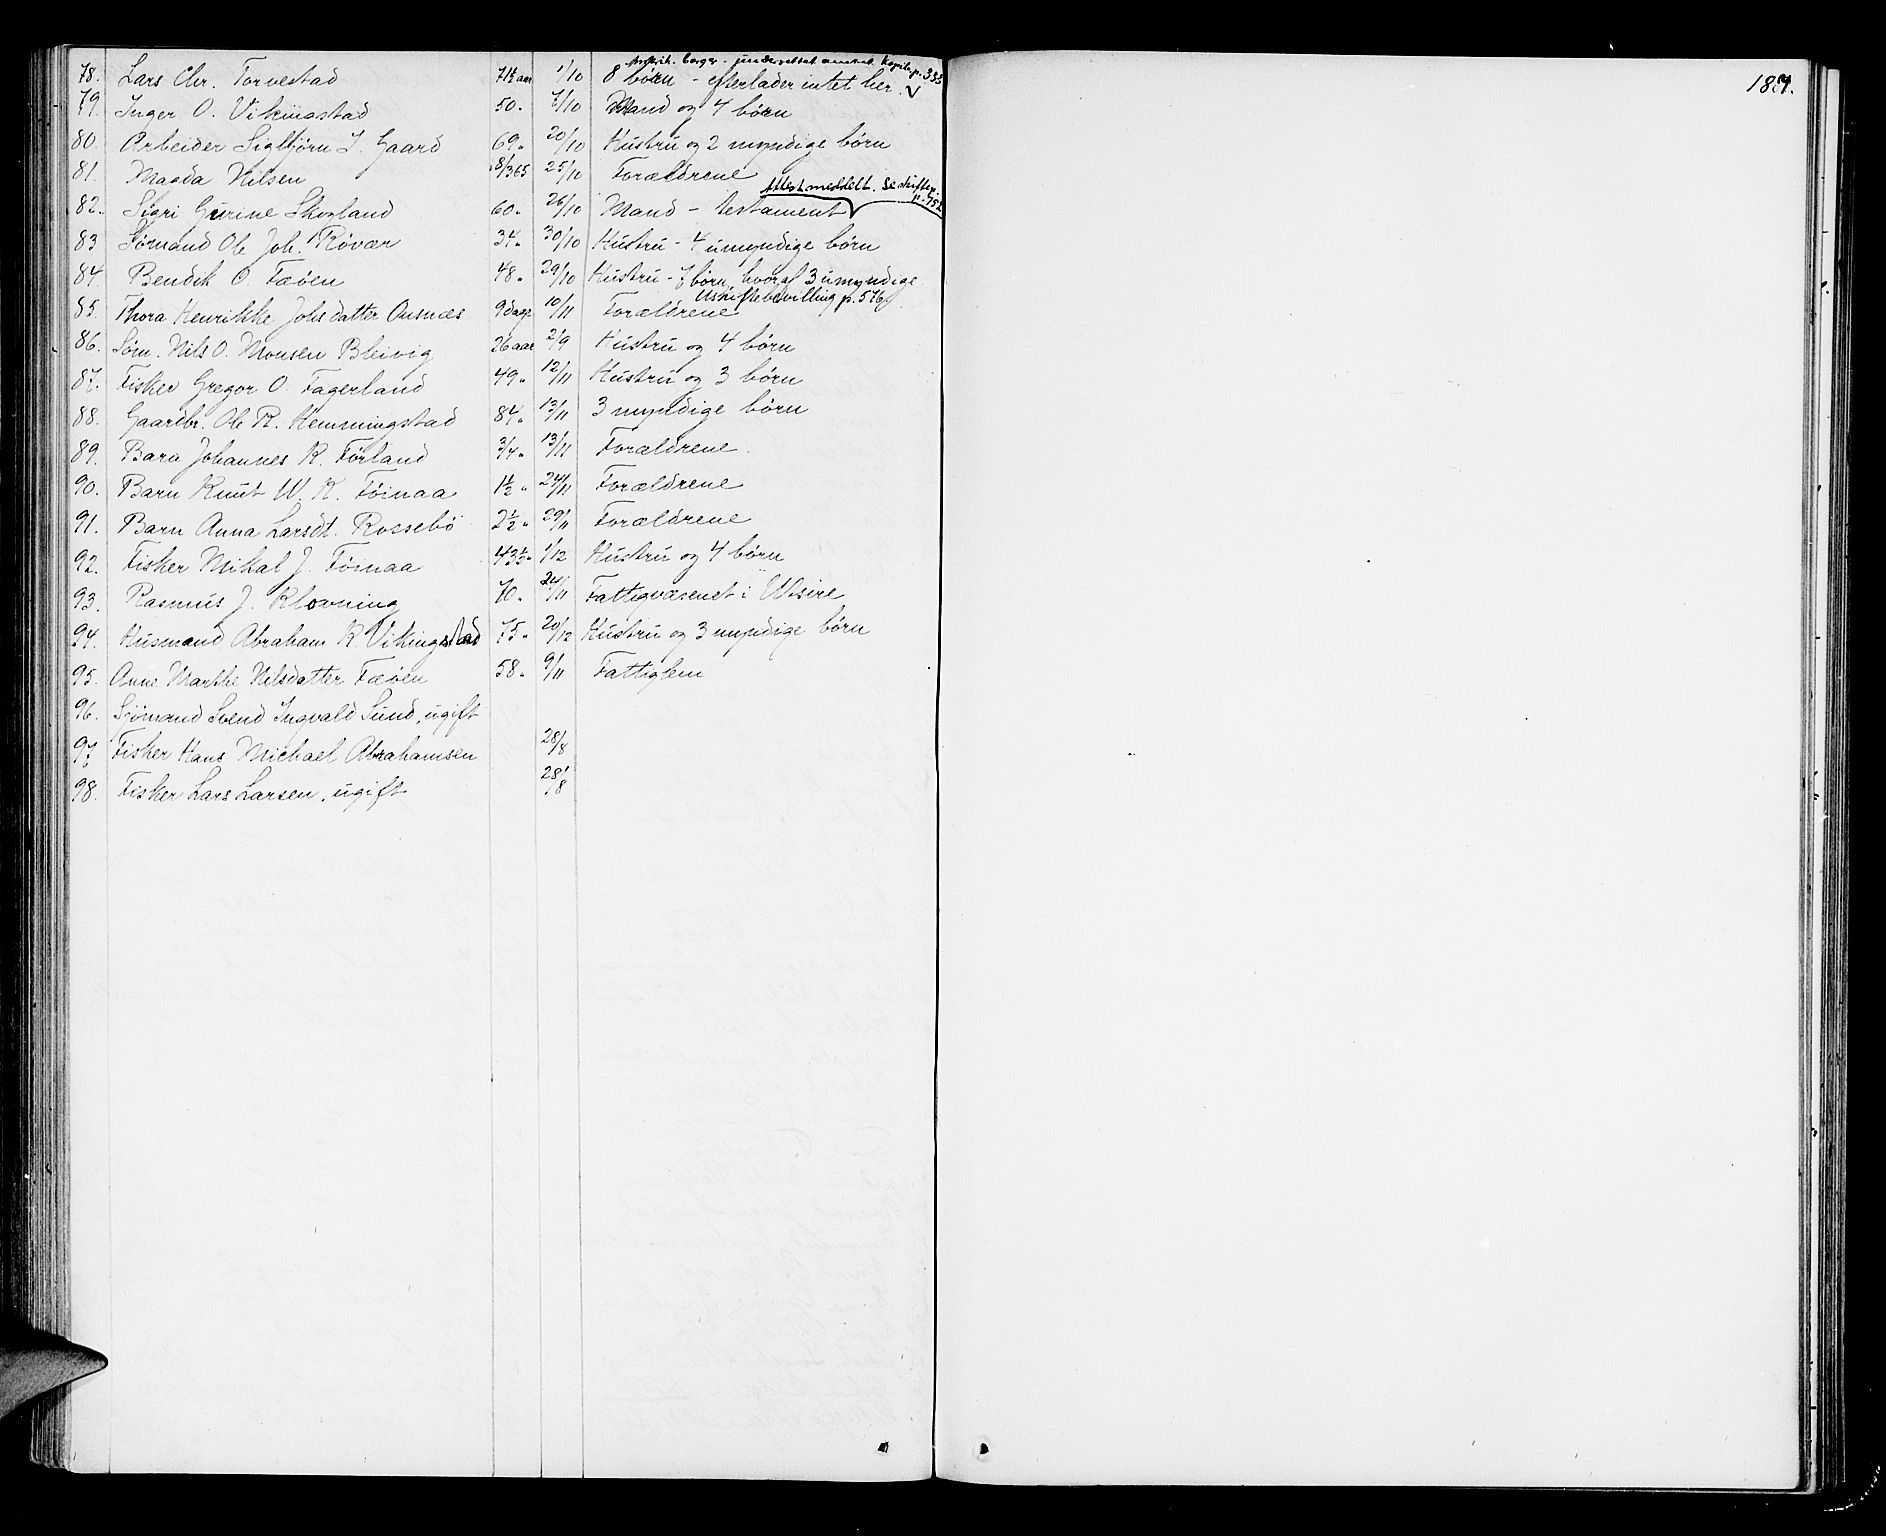 78. Lars Chr. Torvestad 71½ aar 1/10 8 børn - efterlader intet her.
Amerik. borger - underrettet amtet. Kopibp. 333
79. Inger O. Vikingstad 50. 7/10 Mand og 4 børn
80. Arbeider Sigbjørn I. Gaard 69. 20/10 Hustru og 2 myndige børn
81. Magda Nilsen 8/365 25/10 Forældrene
Attest meddelt. Se skiftep. p. 752
82. Sigri Gurine Skogland 60. 26/10 Mand - testament
83 Sømand Ole Joh. Røvær 34. 30/10 Hustru - 4 umyndige børn
84. Bendik O. Fæøen 48. 29/10 Hustru - 7 børn, hvoraf 3 umyndige
Uskiftebevilling p. 576
85. Thora Henrikke Johsdatter Ousnæs 9 dage 10/11 Forældrene
86. Søm. Nils O. Monsen Bleivig 26 aar 2/9 Hustru og 4 børn
87. Fisker Gregor O. Fagerland 49. 12/11 Hustru og 3 børn
88. Gaardbr. Ole R. Hemmingstad 84. 13/11 3 myndige børn
89. Barn Johannes K. Førland 3/4. 13/11 Forældrene.
90. Barn Knut W. K. Føinaa 1½ " 24/11 Forældrene
91. Barn Anna Larsdt. Rossebö 2½. 29/11 Forældrene
92. Fisker Mikal J. Føinaa 43½. 1/12 Hustru og 4 børn
93. Rasmus J. Klovning 70. 24/11 Fattigvæsenet i Utsire
94. Husmand Abraham K. Vikingstad 75. 20/12 Hustru og 3 myndige børn
95. Anne Marthe Nilsdatter Fæøen 58. 9/11 Fattiglem
96. Sjömand Svend Ingvald Sund, ugift
97. Fisker Hans Michael Abrahamsen 28/8
98. Fisker Lars Larsen, ugift 28/8
187.